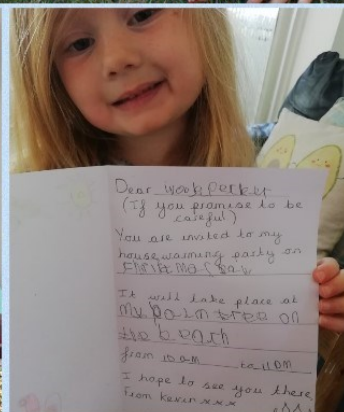 Dear woodpecker
(If you promise to be
careful)
You are invited to my
house warming party on
It will take place at
my palm tree on
the beach
from 10 am to 11 pm
I hope to see you there
From Kevin xxx